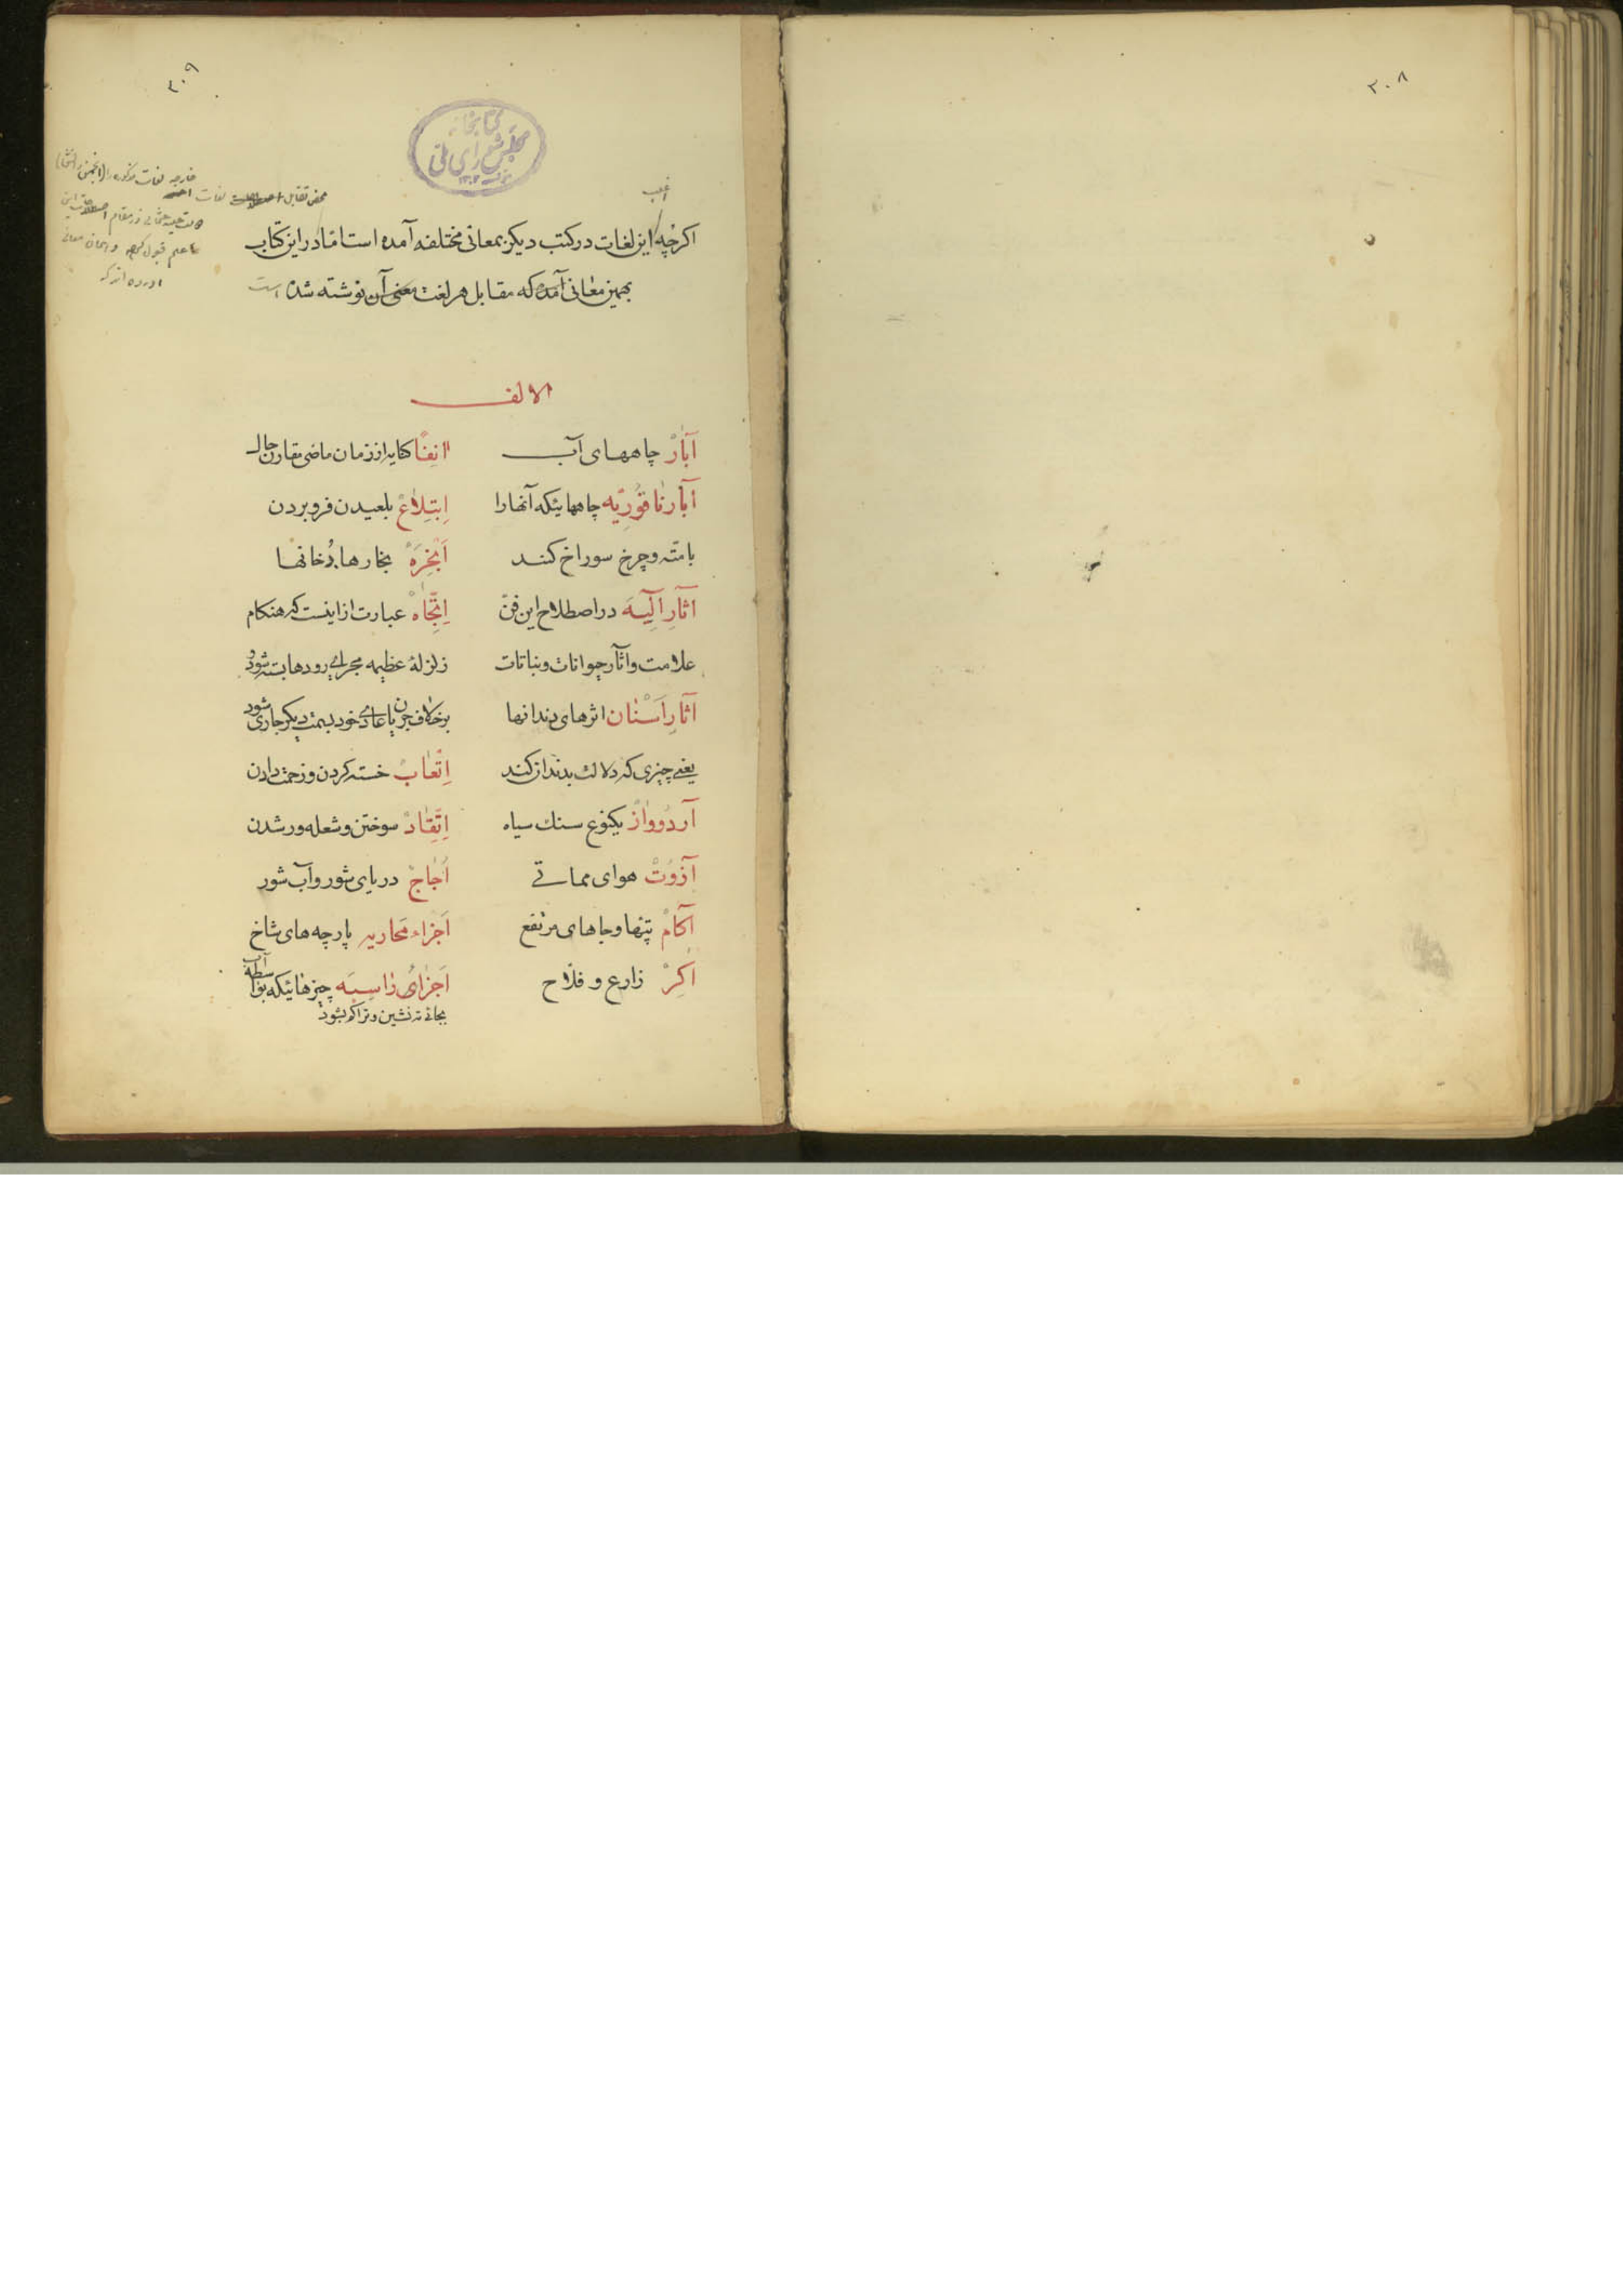 ۳۰۸
۳۰۹
کتابخانه
مجلس شورای ملی
اغلب
اکرچه این لغات در کتب دیکر بمعانی مختلفه آمده است امّا در این کتاب
بهمین معانی آمده که مقابل هر لغت معنی آن نوشته شده است
محض تقابل اصطلاحات لغات
خارجه لغات مذکوره را
در مقام
علم قبول کرده و بهمان معانی
آورده اند که
الالف
آبارْ چاههای آب
آبار ناقُورِیّه چاههائیکه آنها را
با متّه و چرخ سوراخ کنند
آثارِ آلِیَه در اصطلاح این فنّ
علامت و آثار حیوانات و نباتات
آثارِ اَسْنان اثرهای دندانها
یعنی چیزی که دلالت بدندان کند
آردُوواز یکنوع سنك سیاه
آزُوتْ هوای مماتی
آکامْ تپّها و جاهای مرتفع
اَکِرْ زارع و فلّاح
آنِفًا کنایه از زمان ماضی مقارن حال
اِبتِلاعْ بلعیدن فرو بردن
اَبْخِرَهْ بخارها دُخانها
اِتِّجاهْ عبارت از اینست که هنکام
زلزلهٔ عظیمه مجرای رودها بسته شود و
برخلاف جریان عادی خود بسمت دیکر جاری شود
اِتْعابْ خسته کردن و زحمت دادن
اِتِّقادْ سوختن و شعله ور شدن
اُجاجْ دریای شور و آب شور
اَجزاء مَحاریه پارچه های شاخ
اَجزایُ راسِبَه چیزهائیکه بواسطهٔ آب
بجائی ته نشین و تراکم بشود